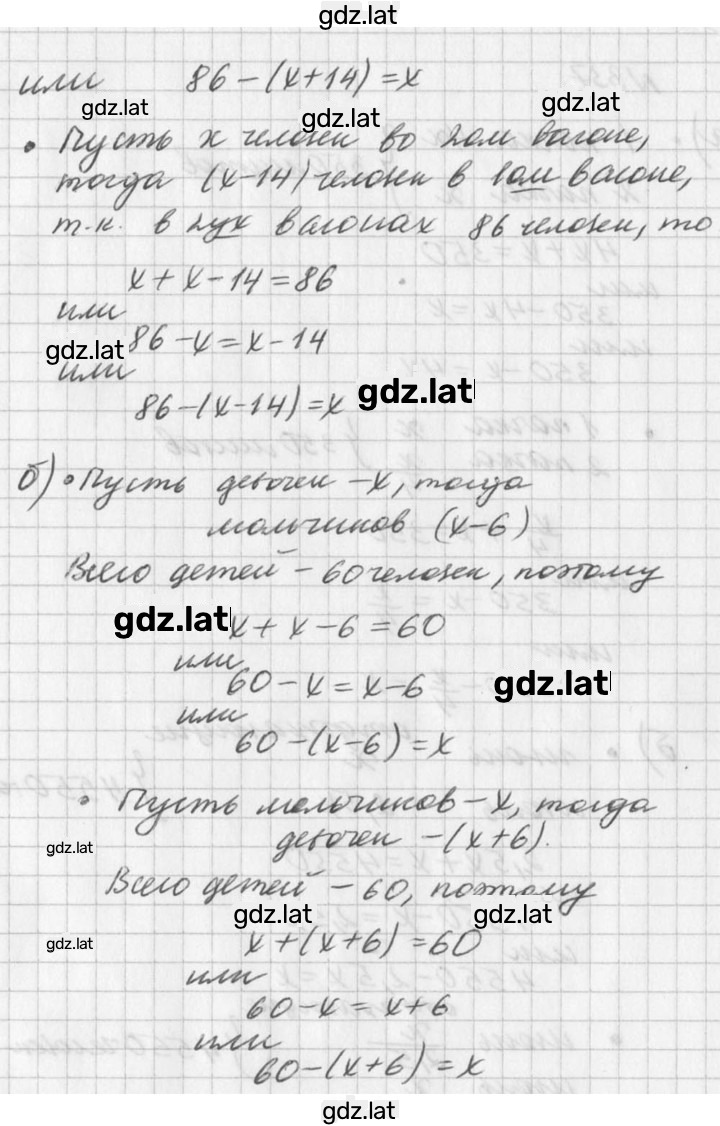 gdz.lat
или 86 – (x+14) = x
gdz.lat gdz.lat gdz.lat
• Пусть x человек во 2ом вагоне,
тогда (x-14) человек в 1ом вагоне,
т.к. в 2ух вагонах 86 человек, то
x + x – 14 = 86
или
gdz.lat 86 – x = x – 14
или
86 – (x – 14) = x gdz.lat
б) • Пусть девочек – x, тогда
мальчиков (x–6)
Всего детей – 60 человек, поэтому
gdz.lat x + x – 6 = 60
или
60 – x = x – 6 gdz.lat
или
60 – (x – 6) = x
• Пусть мальчиков – x, тогда
gdz.lat девочек – (x+6).
Всего детей – 60, поэтому
gdz.lat gdz.lat
gdz.lat x + (x+6) = 60
или
60 – x = x + 6
или
60 – (x+6) = x
gdz.lat